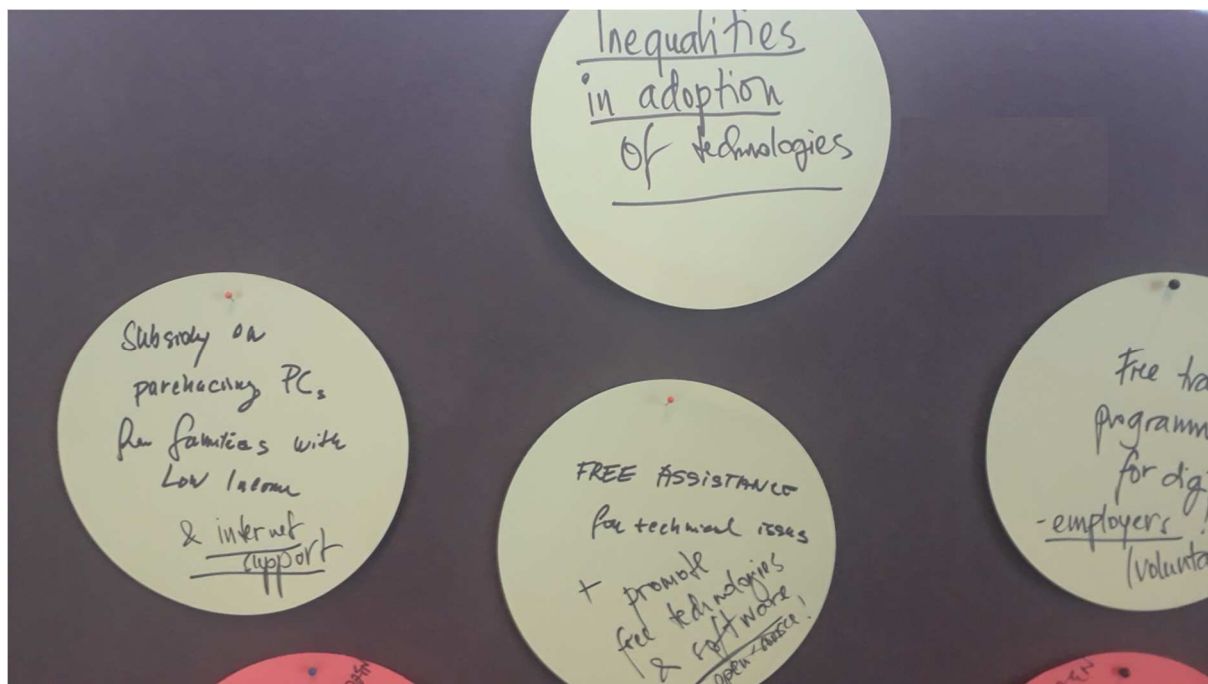 Inequalities
in adoption
of technologies
Subsidy on
purchacing PCs
for families with
Low Income
& internet
support
FREE ASSISTANCE
for technical issues
+ promote
free technologies
& software
open-source!
Free tra
programm
for dig
- employers !
(volunta